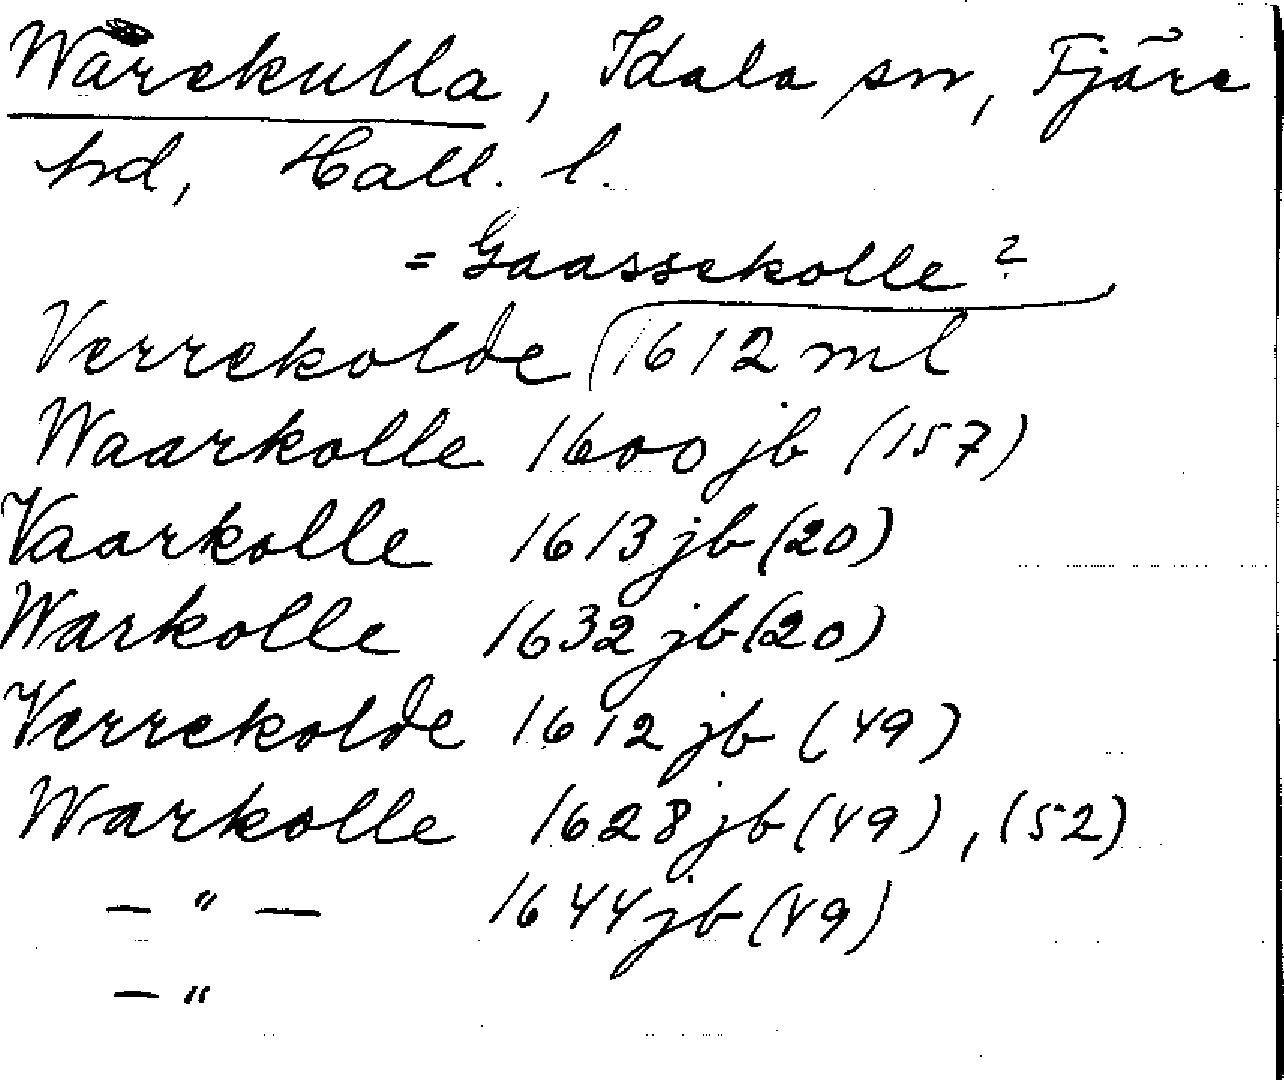 Warekulla, Idala sn, Fjäre
hd, Hall. l.
= Gaassekolle?
Verrekolde 1612 ml
Waarkolle 1600 jb (157)
Vaarkolle 1613 jb (20)
Warkolle 1632 jb (20)
Verrekolde 1612 jb (49)
Warkolle 1628 jb (49), (52)
— " — 1644 jb (49)
— "